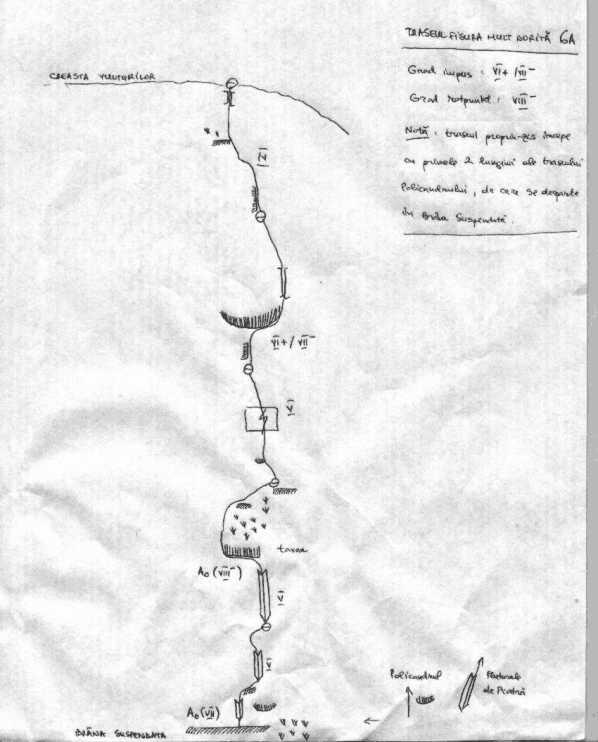 TRASEUL FIGURA MULT DORITĂ 6A
Grad impus : VI+ / VII-
Grad rotpunkt : VIII-
Notă : traseul propriu-zis începe
cu primele 2 lungimi ale traseului
Policandrului, de care se desparte
în Brâna Suspendată.
CREASTA VULTURILOR
IV
VI+ / VII-
V
tavan
A0 (VIII-)
V
V
A0 (VII)
BRÂNA SUSPENDATĂ
Policandrul
Pintenele
de Piatră